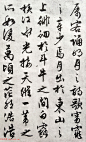 屬客誦明月之詩歌窈窕
之章少焉月出於東山之
上徘徊於斗牛之間白露
橫江水光接天縱一葦之
所如凌萬頃之茫然浩浩